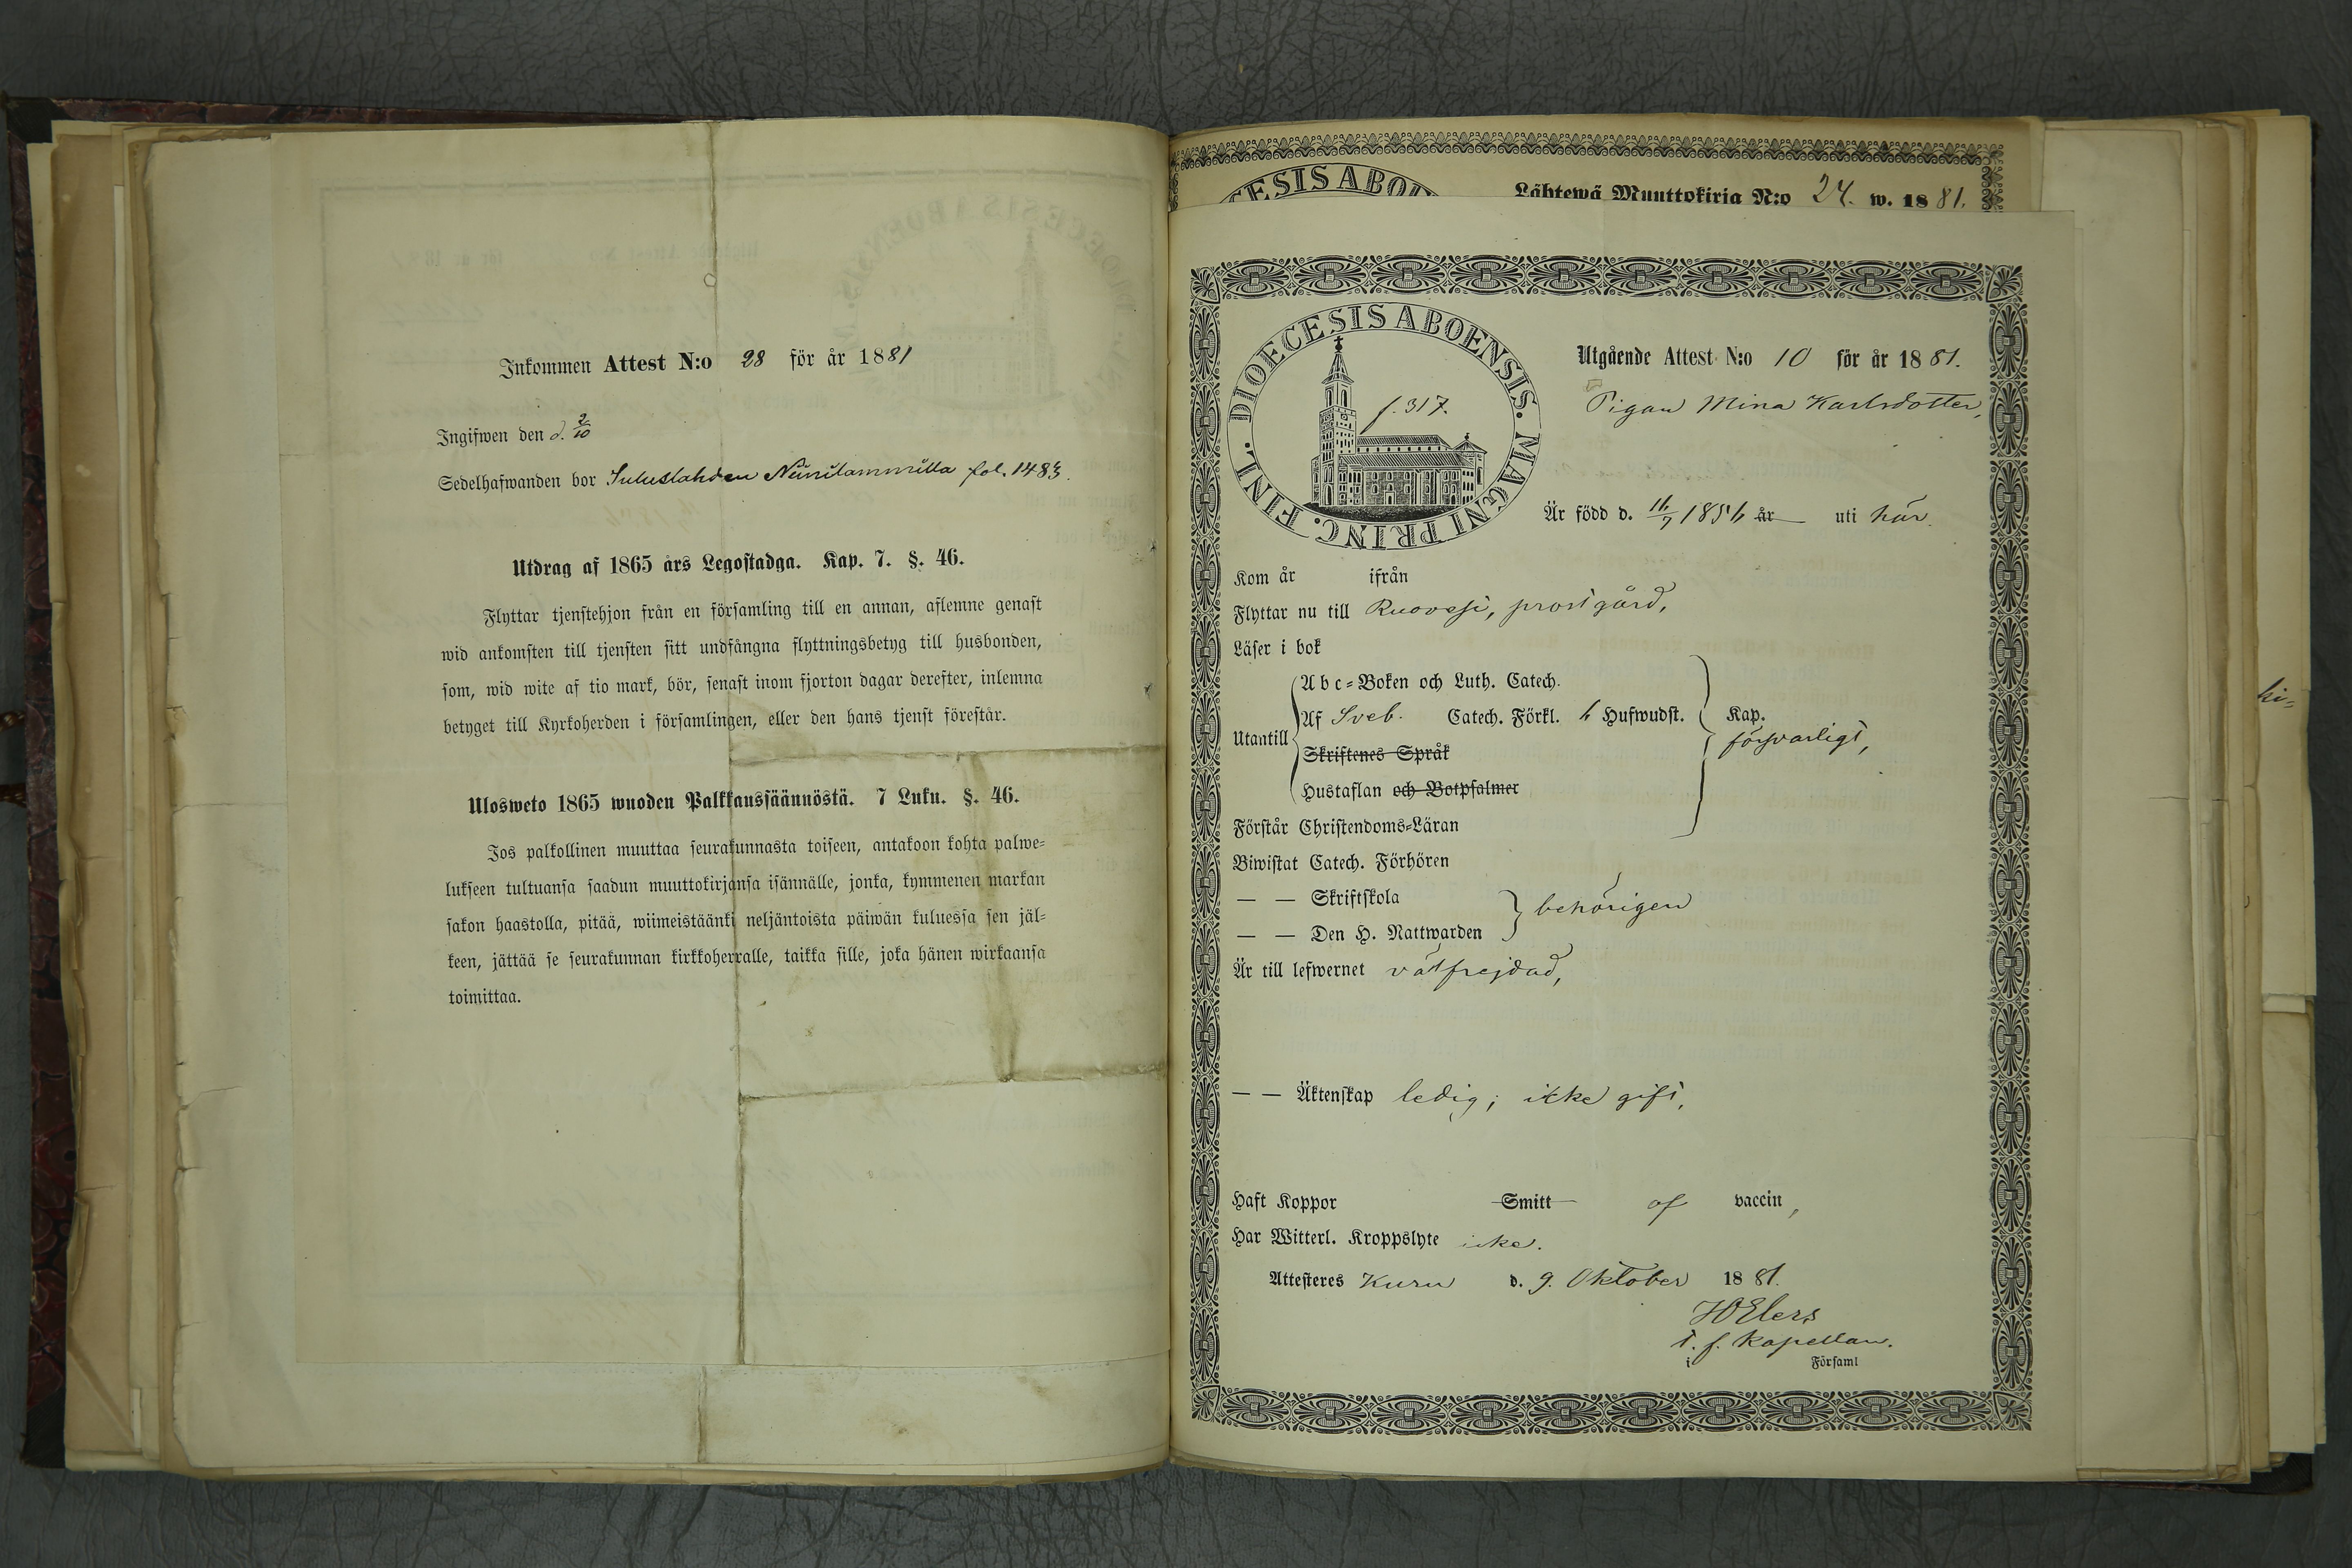 Inkommen Attest N:o 28 för år 1881
Ingifwen den d. 2/10
Sedelhafwanden bor fol. 1483.
Utdrag af 1865 års Legostadga. Kap. 7. §. 46.
Flyttar tjenstehjon från en församling till en annan, aflemne genast
wid ankomsten till tjensten sitt undfångna flyttningsbetyg till husbonden,
som, wid wite af tio mark, bör, senast inom fjorton dagar derefter, inlemna
betyget till Kyrkoherden i församlingen, eller den hans tjenst förestår.
Ulosweto 1865 wuoden Palkkaussäännöstä. 7 Luku. §. 46.
Jos palkollinen muuttaa seurakunnasta toiseen, antakoon kohta palwe=
lukseen tultuansa saadun muuttokirjansa isännälle, jonka, kymmenen markan
sakon haastolla, pitää, wiimeistäänki neljäntoista päiwän kuluessa sen jäl=
keen, jättää se seurakunnan kirkkoherralle, taikka sille, joka hänen wirkaansa
toimittaa.
CESIS ABOEN
Lähtewä Muuttokirja N:o 24. w. 1881.
DIOECESIS ABOENSIS. MAGNI PRINC. FINL.
f. 317.
Utgående Attest N:o 10 för år 1881.
Pigan Mina Karlsdotter,
Är född d. 16/7 1856 år uti här
Kom år ifrån
Flyttar nu till Ruovesi, prostgård,
Läser i bok
Utantill
A b c=Boken och Luth. Catech.
Af Sveb. Catech. Förkl. 6 Hufwudst.
Skriftenes Språk
Hustaflan och Botpsalmer
Kap.
försvarligt,
Förstår Christendoms=Läran
Biwistat Catech. Förhören
— — Skriftskola
— — Den H. Nattwarden
behörigen
Är till lefwernet välfrejdad,
— — Äktenskap ledig; icke gift,
Haft Koppor Smitt af vaccin,
Har Witterl. Kroppslyte icke.
Attesteres Kuru d. 9. Oktober 1881.
Elers
t. f. Kapellan.
i Församl
hi=